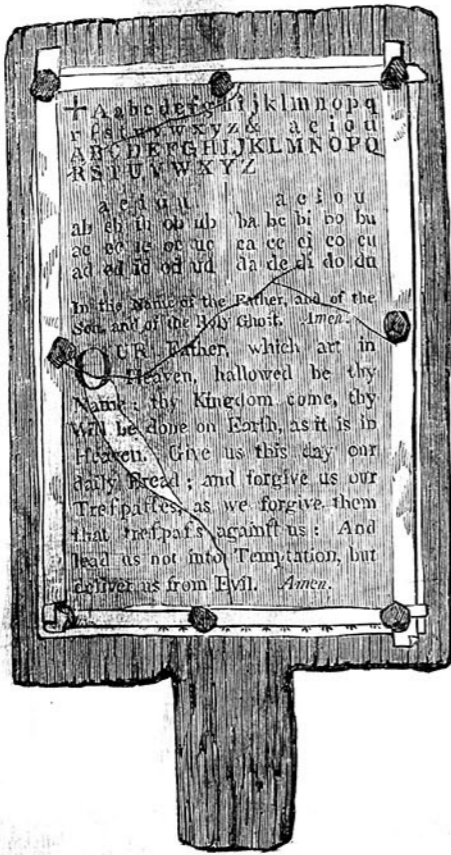 + A a b c d e f g h i j k l m n o p q
r ſ s t u v w x y z & a e i o u
A B C D E F G H I J K L M N O P Q
R S T U V W X Y Z
a e i o u a e i o u
ab eb ib ob ub ba be bi bo bu
ac ec ic oc uc ca ce ci co cu
ad ed id od ud da de di do du
In the Name of the Father, and of the
Son, and of the Holy Ghoſt. Amen.
OUR Father, which art in
Heaven, hallowed be thy
Name; thy Kingdom come, thy
Will be done on Earth, as it is in
Heaven. Give us this day our
daily Bread; and forgive us our
Treſpaſſes, as we forgive them
that treſpaſs againſt us: And
lead us not into Temptation, but
deliver us from Evil. Amen.